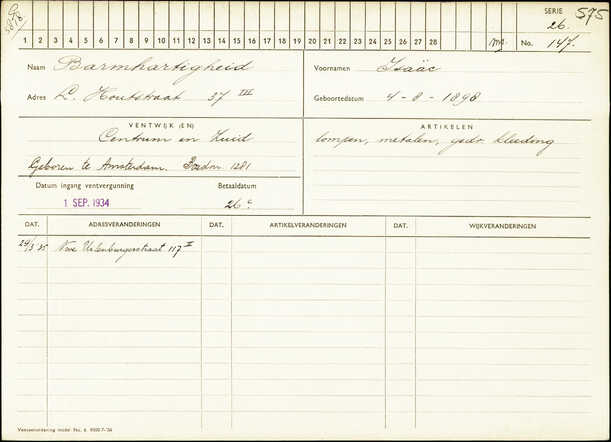 SERIE 575
26.
1 2 3 4 5 6 7 8 9 10 11 12 13 14 15 16 17 18 19 20 21 22 23 24 25 26 27 28 No. 147.
Naam Barmhartigheid Voornamen Isaäc
Adres L. Houtstraat 37 III Geboortedatum 4-8-1898
VENTWIJK (EN) ARTIKELEN
Centrum en Zuid lompen, metalen, gedr. kleeding
Geboren te Amsterdam. 1281
Datum ingang ventvergunning Betaaldatum
1 SEP. 1934 26e
DAT. ADRESVERANDERINGEN DAT. ARTIKELVERANDERINGEN DAT. WIJKVERANDERINGEN
29/3 '35 Nwe Uilenburgerstraat 117 II